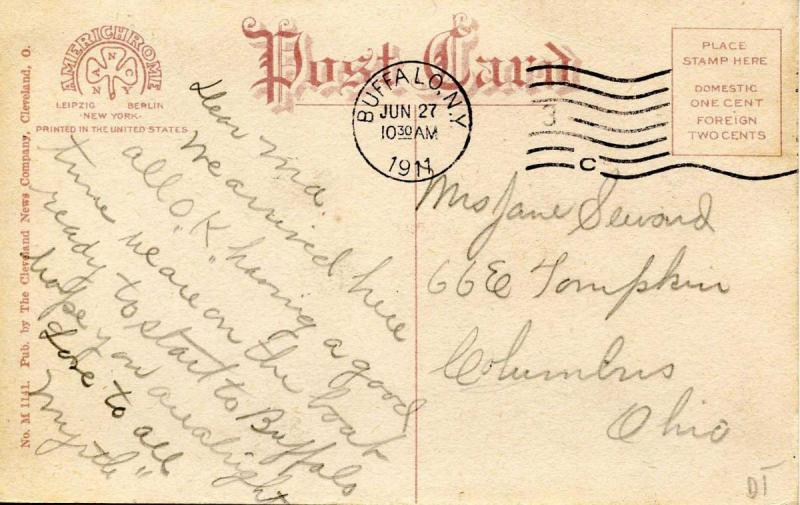 AMERICHROME
ANCN
LEIPZIG BERLIN
·NEW YORK·
PRINTED IN THE UNITED STATES
No. M 1141. Pub. by The Cleveland News Company, Cleveland, O.
Post Card
BUFFALO, N.Y.
JUN 27
10 30 AM
1911
3
C
PLACE
STAMP HERE
DOMESTIC
ONE CENT
FOREIGN
TWO CENTS
Dear Ma.
We arrived here
all "O K" having a good
time we are on the boat
ready to start to Buffalo
hope you are alright
Love to all
Myrtle"
Mrs Jane Seward
66 E Tompkin
Columbus
Ohio
DT